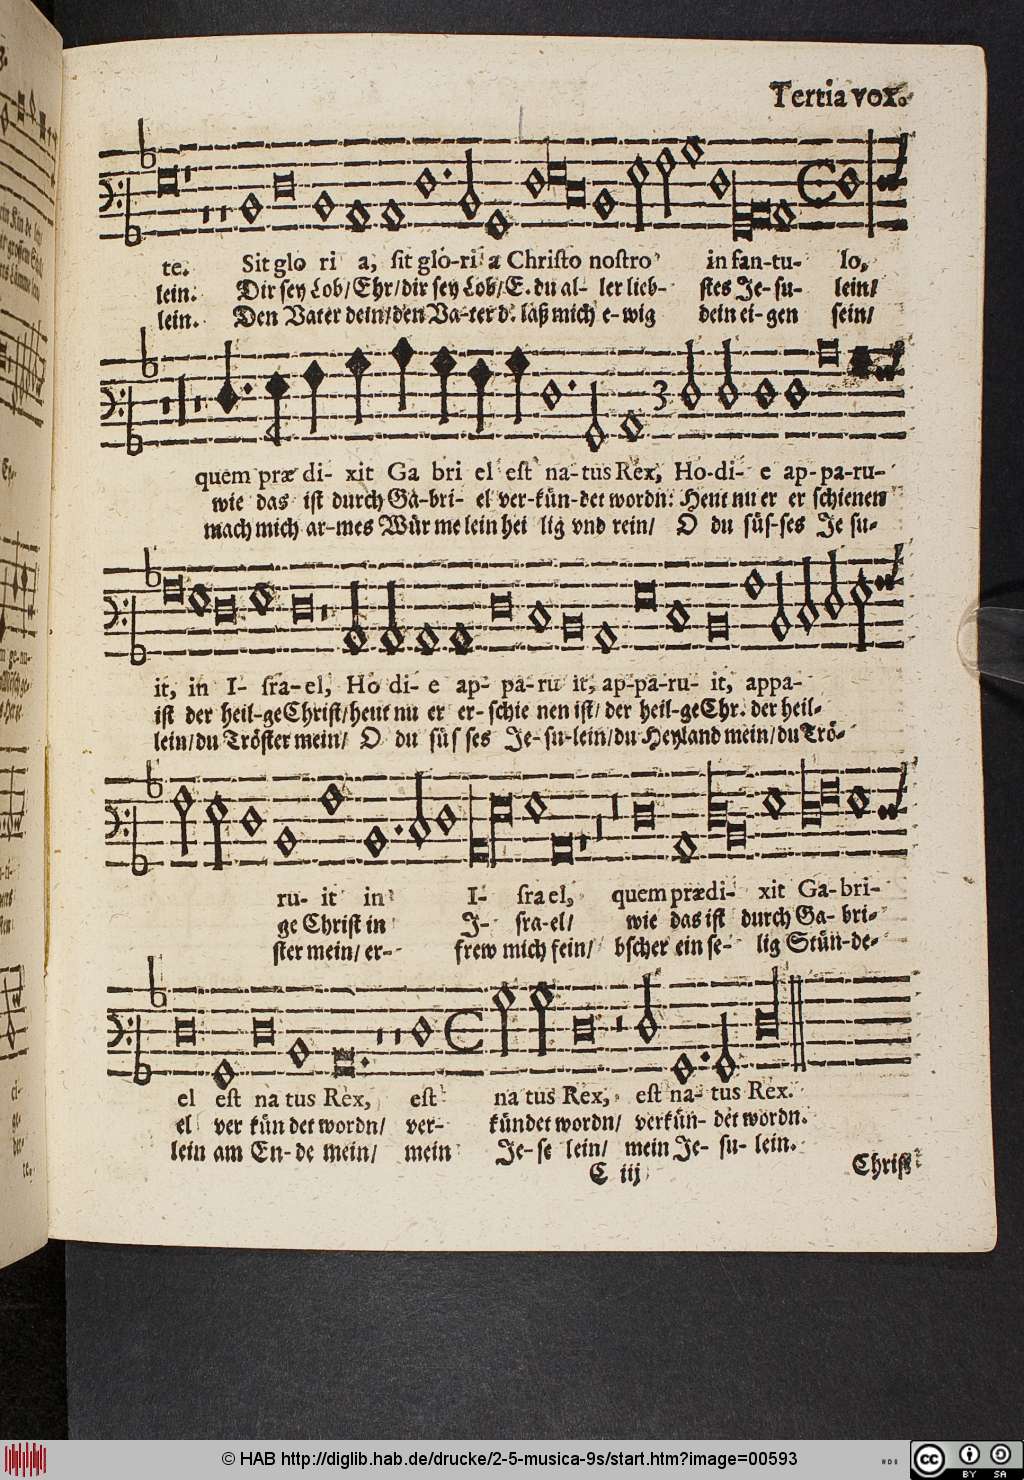 Tertia vox.
te. Sit glo ri a, sit glo-ri a Christo nostro in fan-tu- lo,
lein. Dir sey Lob/ Ehr/ dir sey Lob/ E. du al- ler lieb- stes Je- su- lein/
lein. Den Vater dein/ den Va-ter d. laß mich e-wig dein ei-gen sein/
3
quem præ di- xit Ga bri el est na-tus Rex, Ho-di- e ap-pa-ru-
wie das ist durch Ga-bri- el ver-kün-det wordn: Heut nu er er schienen
mach mich ar-mes Würmelein hei lig vnd rein/ O du süs-ses Je su-
it, in I- sra-el, Ho di- e ap- pa-ru it, ap-pa-ru- it, appa-
ist der heil-ge Christ/ heut nu er er- schie nen ist/ der heil-ge Chr. der heil-
lein/ du Tröster mein/ O du süs ses Je- su-lein/ du Heyland mein/ du Trö-
ru- it in I- sra el, quem prædi- xit Ga- bri-
ge Christ in I- sra-el/ wie das ist durch Ga- bri-
ster mein/ er- frew mich fein/ bscher ein se- lig Stün-de-
el est na tus Rex, est na tus Rex, est na- tus Rex.
el ver kün det wordn/ ver- kündet wordn/ verkün- det wordn.
lein am En-de mein/ mein Je- se lein/ mein Je- su- lein.
C iij
Christ
© HAB http://diglib.hab.de/drucke/2-5-musica-9s/start.htm?image=00593
cc BY SA